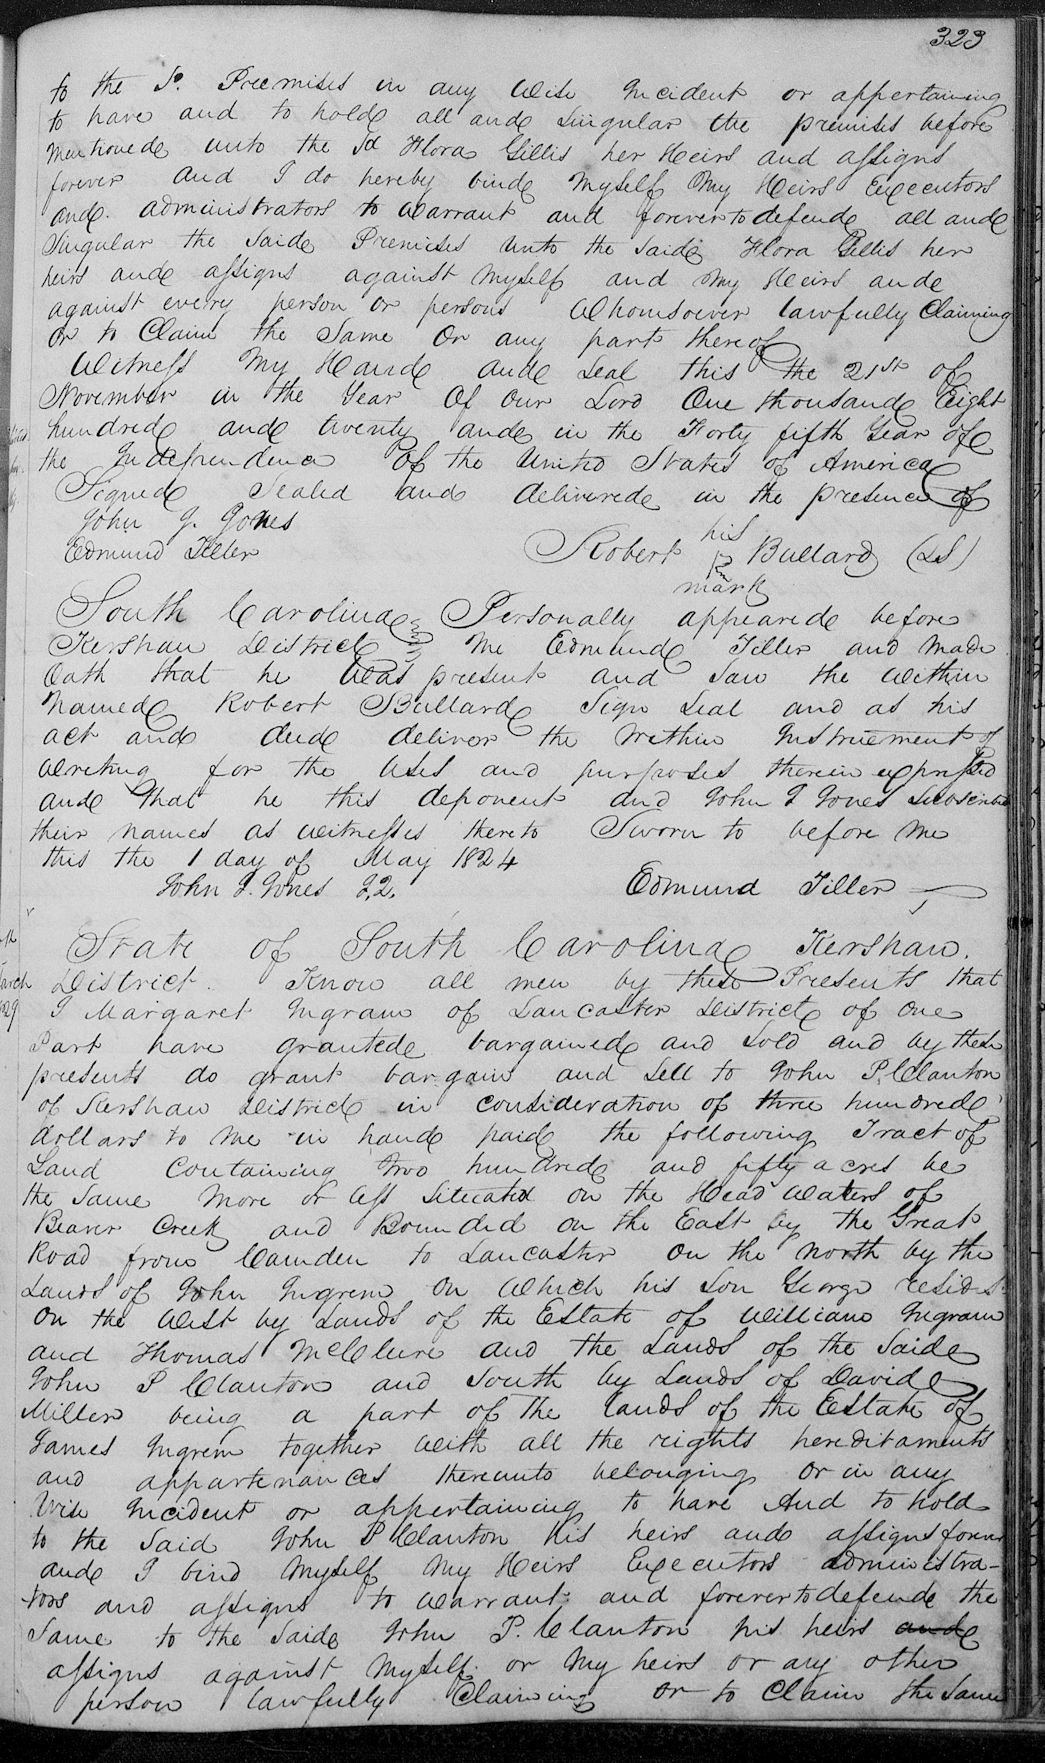 323
to the Sd. Premises in any wise Incident or appertaining
to have and to hold all and Singular the premises before
mentioned unto the Sd Flora Gillis her Heirs and assigns
forever and I do hereby bind Myself My Heirs Executors
and administrators to Warrant and forever to defend all and
Singular the Said Premises unto the Said Flora Gillis her
heirs and assigns against Myself and My Heirs and
against every person or persons Whomsoever lawfully Claiming
or to Claim the Same Or any part thereof
Witness My Hand and Seal this the 21st of
November in the Year Of Our Lord One thousand Eight
hundred and twenty and in the Forty fifth Year of
the Independence Of the United States of America
Signed Sealed and delivered in the presence of
John J. Jones
Edmund Tiller Robert his Bullard (LS)
mark
South Carolina Personally appeared before
Kershaw District Me Edmund Tiller and Made
Oath that he Was present and Saw the Within
Named Robert Bullard Sign Seal and as his
act and deed deliver the Within Instruement of
Writing for the Uses and purposes therein expressed
and that he this deponent and John J Jones Subscribed
their names as Witnesses thereto Sworn to before Me
this the 1 day of May 1824
John J. Jones J,Q, Edmund Tiller
State of South Carolina Kershaw
District. Know all men by these Presents that
I Margaret Ingram of Lancaster District of One
Part have granted bargained and Sold and by these
presents do grant bargain and Sell to John P. Clanton
of Kershaw District in Consideration of three hundred
dollars to Me in hand paid the following Tract of
Land Containing Two hundred and fifty acres be
the Same More or less Situated on the Head Waters of
Beaver Creek and Bounded on the East by the Great
Road from Camden to Lancaster On the North by the
Lands of John Ingrem On Which his Son George resides
On the West by Lands of the Estate of William Ingram
and Thomas McClure and the Lands of the Said
John P Clanton and South by Lands of David
Miller being a part of the lands of the Estate of
James Ingrem together With all the rights hereditaments
and appartenances thereunto belonging Or in any
Wise Incident or appertaining to have And to hold
to the Said John P Clanton his heirs and assigns forever
and I bind Myself My Heirs Executors administra-
tors and assigns to Warrant and forever to defend the
Same to the Said John P. Clanton his heirs and
assigns against Myself or My heirs or any other
person lawfully Claiming or to Claim the Same